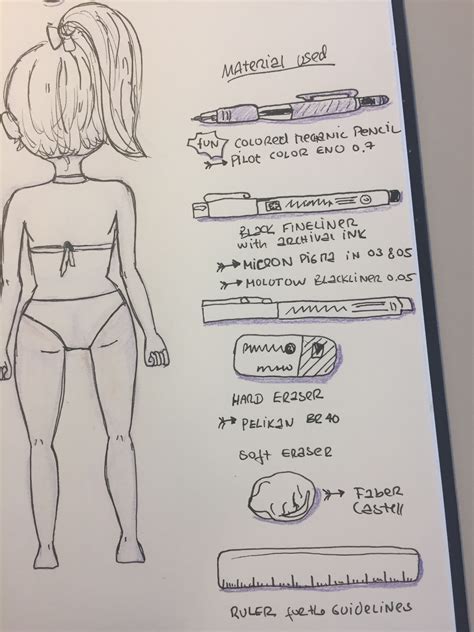 Material used
fun
COLORED MECANIC PENCIL
PILOT COLOR ENO 0,7
BLACK FINELINER
with ARCHIVAL INK
MICRON PIGMA IN 03 & 05
MOLOTOW BLACKLINER 0.05
HARD ERASER
PELIKAN BR 40
SOFT ERASER
FABER
CASTELL
RULER for the GUIDELINES